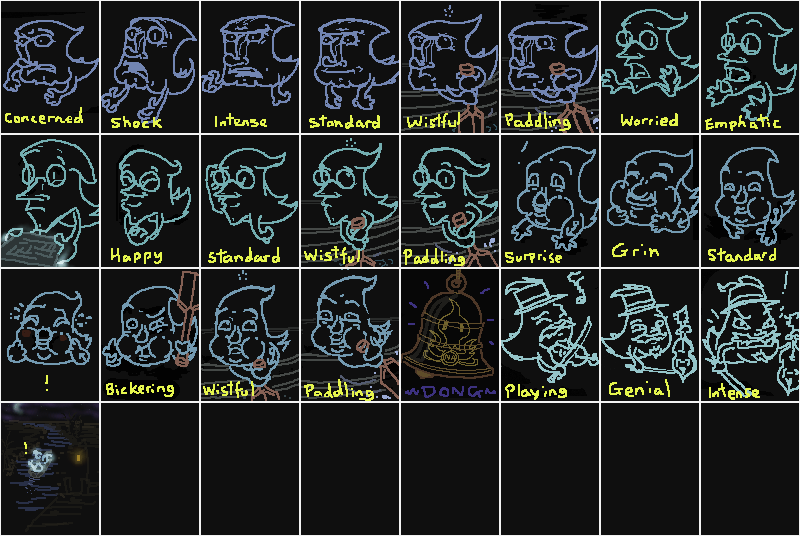 Concerned
Shock
Intense
Standard
Wistful
Paddling
Worried
Emphatic
Happy
Standard
Wistful
Paddling
Surprise
Grin
Standard
!
Bickering
Wistful
Paddling
NA
~DONG~
Playing
Genial
Intense
!